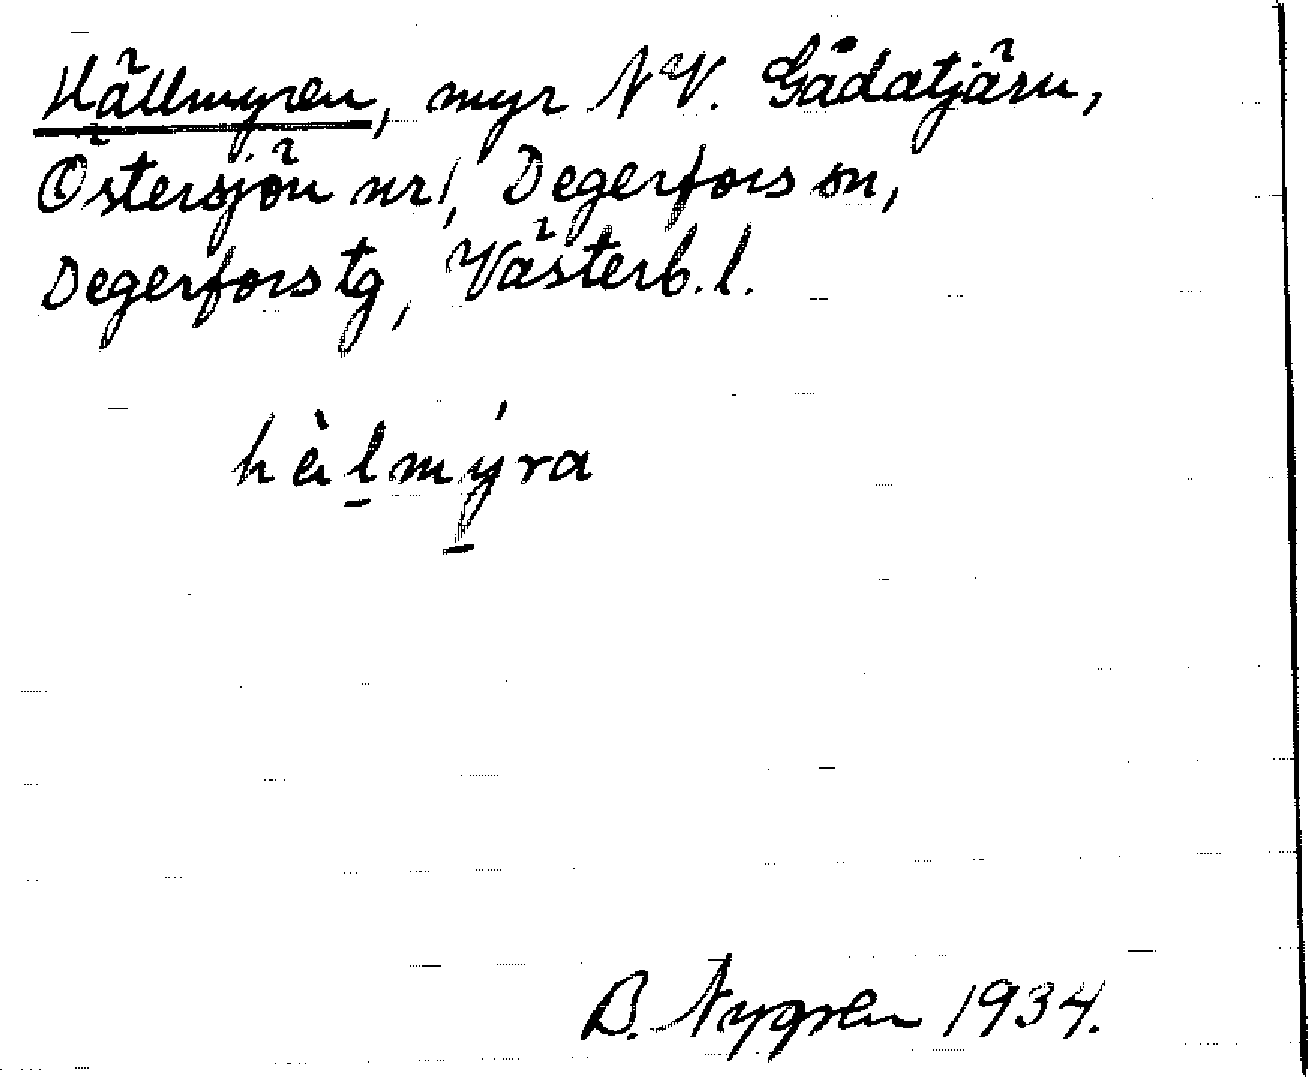 Hällmyren, myr NV. Gådatjärn,
Östersjön nr 1, Degerfors sn,
Degerfors tg, Västerb. l.
hèl̠mý̠ra
B. Nygren 1934.